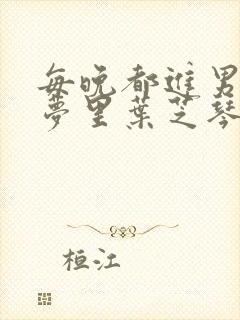 每晚都進男
夢里葉芝琴
桓江